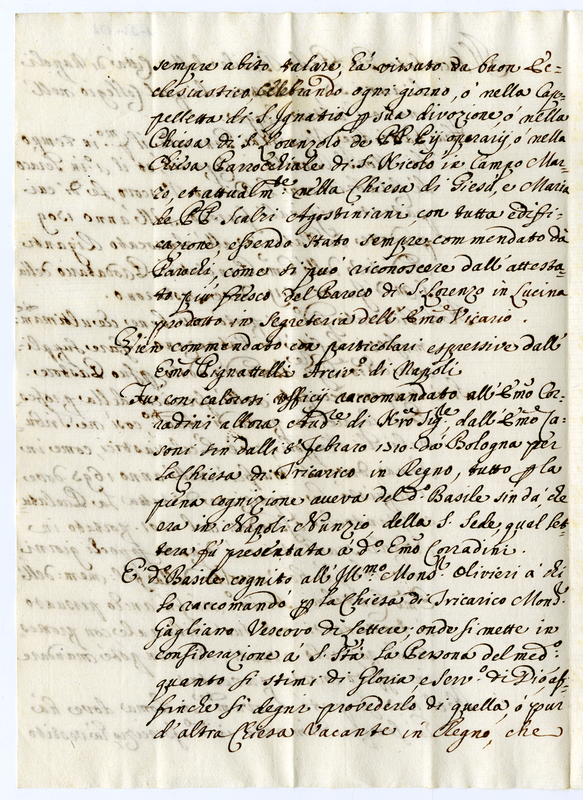 sempre abito talare, há vissuto da buon Ec=
clesiastico celebrando ogni giorno, ó nella Cap=
pelletta di S. Ignatio p sua divozione, ó nella
Chiesa di S. Lorenzolo de PP. Pij operarij, ó nella
Chiesa Parrochiale di S. Nicolò in Campo Mar=
zo, et attualmte nella Chiesa di Giesù, e Maria
de PP. Scalzi Agostiniani, con tutta edifi=
cazione essendo stato sempre commendato da
Parochi, come si può riconoscere dall'attesta=
to più fresco del Paroco di S. Lorenzo in Lucina
prodotto in Segreteria dell'Emo Vicario.
Vien commendato con particolari espressive dall'
Emo Pignattelli Arcivo. di Napoli
Fù con calorosi officij raccomandato all'Emo Cor=
radini allora Audre di Nro Sigre, dall'Emo Ca=
soni sin dalli 8 Febraro 1710. da Bologna per
la Chiesa di Tricarico in Regno, tutto p la
piena cognizione aveva del do. Basile sin da che
era in Napoli Nunzio della S. Sede, qual let=
tera fù presentata á do. Emo Corradini.
E do. Basile cognito all'Illmo Monsr. Olivieri á chi
lo raccomandó p la Chiesa di Tricarico Monsr.
Gagliano Vescovo di Settere; onde si mette in
considerazione á S. Stà la Persona del medo.
quanto si stimi di Gloria e Servo. di Dio af=
finche si degni provederlo di quella, ó pur
d'altra Chiesa Vacante in Regno, che